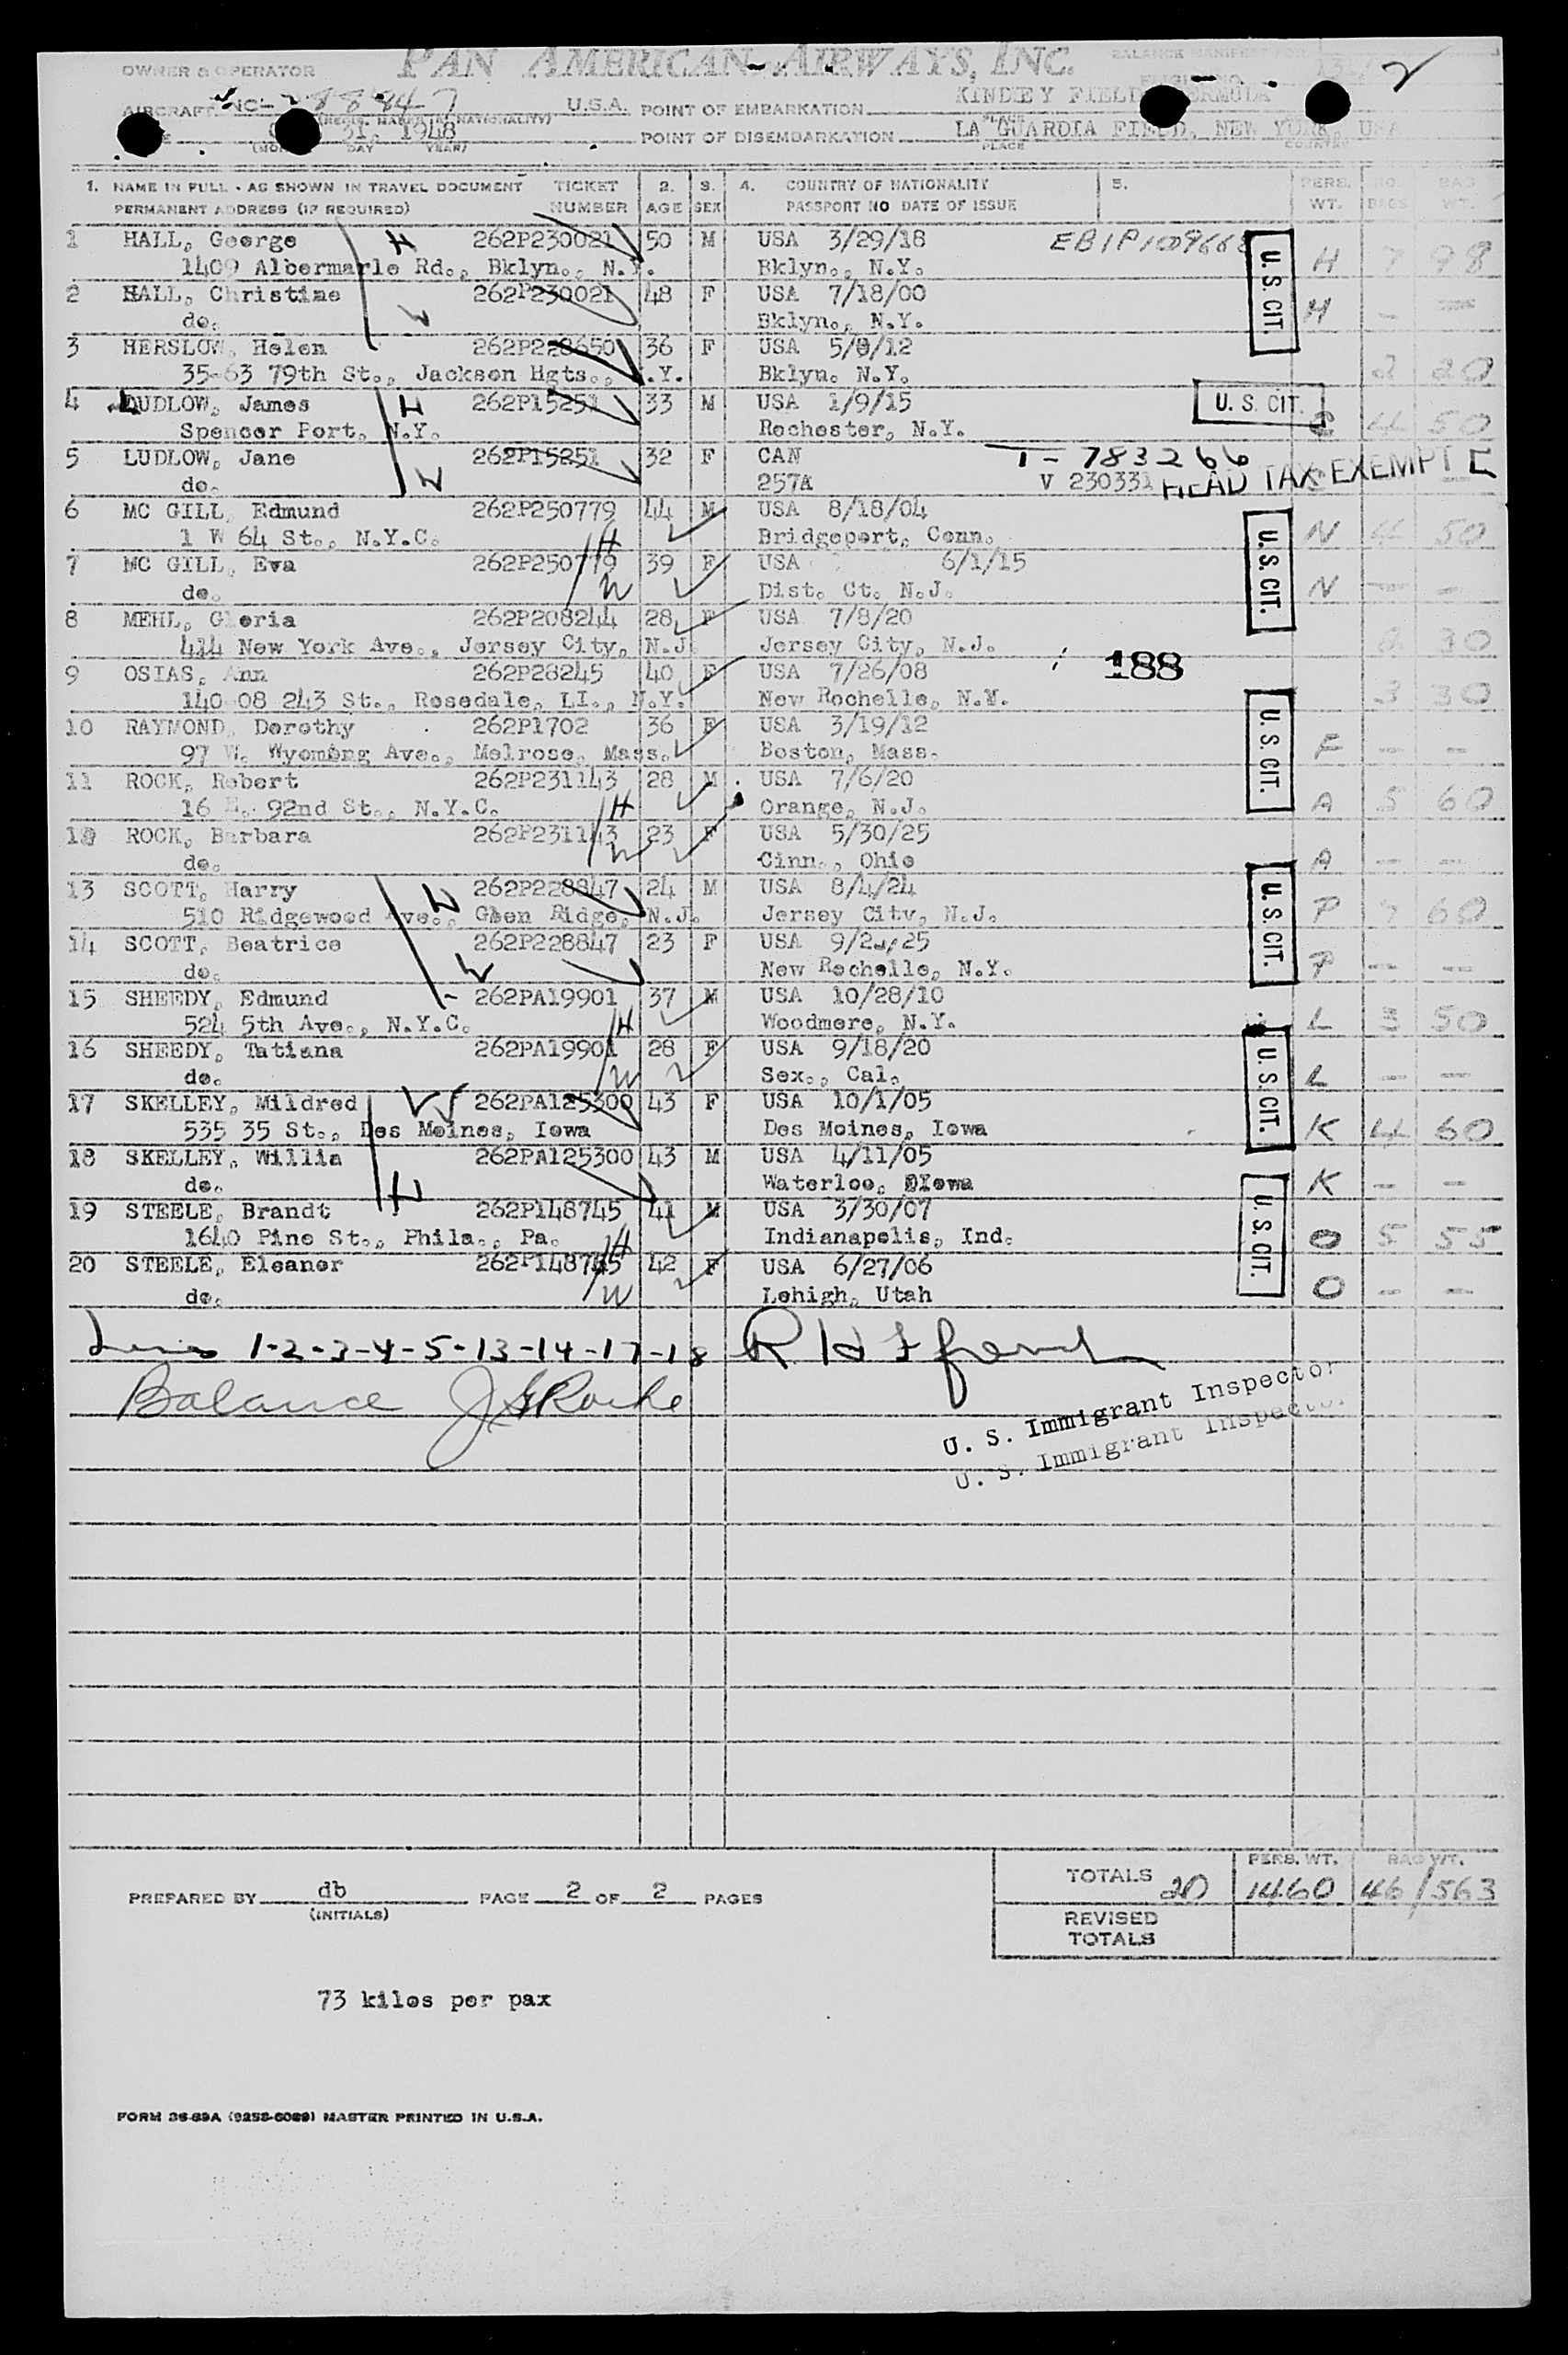 PAN AMERICAN AIRWAYS, INC.
OWNER & OPERATOR
BALANCE MANIFEST
2
AIRCRAFT NC-88847 U.S.A. POINT OF EMBARKATION KINDLEY FIELD BERMUDA
31, 1948 POINT OF DISEMBARKATION LA GUARDIA FIELD, NEW YORK, USA
DAY YEAR) PLACE COUNTRY
1. NAME IN FULL - AS SHOWN IN TRAVEL DOCUMENT TICKET 2. 3. 4. COUNTRY OF NATIONALITY 5. PERS. NO. BAG
PERMANENT ADDRESS (IF REQUIRED) NUMBER AGE SEX PASSPORT NO DATE OF ISSUE WT. BAGS WT.
1 HALL, George H 262P230021 50 M USA 3/29/18 U.S. CIT. H 7 98
1409 Albermarle Rd., Bklyn., N.Y. Bklyn., N.Y.
2 HALL, Christine W 262P230021 48 F USA 7/18/00 H - -
do. Bklyn., N.Y.
3 HERSLOW, Helen 262P228650 36 F USA 5/9/12 2 20
35-63 79th St., Jackson Hgts., .Y. Bklyn. N.Y.
4 LUDLOW, James H 262P15251 33 M USA 1/9/15 U. S. CIT. 4 50
Spencer Port, N.Y. Rochester, N.Y.
5 LUDLOW, Jane W 262P15251 32 F CAN T-783266
do. 257A V 230331 HEAD TAX EXEMPT
6 MC GILL, Edmund 262P250779 44 M USA 8/18/04 U.S. CIT. N 4 50
1 W 64 St., N.Y.C. H Bridgeport, Conn.
7 MC GILL, Eva 262P250779 39 F USA 6/1/15 N - -
do. W Dist. Ct. N.J.
8 MEHL, Gloria 262P208244 28 F USA 7/8/20 30
414 New York Ave., Jersey City, N.J. Jersey City, N.J.
9 OSIAS, Ann 262P28245 40 F USA 7/26/08 188 3 30
140 08 243 St., Rosedale, LI., N.Y. New Rochelle, N.Y.
10 RAYMOND, Dorothy 262P1702 36 F USA 3/19/12 U.S. CIT. F - -
97 W. Wyoming Ave., Melrose, Mass. Boston, Mass.
11 ROCK, Robert 262P231143 28 M USA 7/6/20 A 5 60
16 E. 92nd St., N.Y.C. H Orange, N.J.
12 ROCK, Barbara 262P231143 23 F USA 5/30/25 A - -
do. W Cinn., Ohio
13 SCOTT, Harry H 262P228847 24 M USA 8/4/24 U.S. CIT. P 7 60
510 Ridgewood Ave., Glen Ridge, N.J. Jersey City, N.J.
14 SCOTT, Beatrice W 262P228847 23 F USA 9/2 /25 P - -
do. New Rochelle, N.Y.
15 SHEEDY, Edmund 262PA19901 37 M USA 10/28/10 L 3 50
524 5th Ave., N.Y.C. H Woodmere, N.Y.
16 SHEEDY, Tatiana 262PA19901 28 F USA 9/18/20 U.S. CIT. L - -
do. W Sex., Cal.
17 SKELLEY, Mildred W 262PA125300 43 F USA 10/1/05 K 4 60
535 35 St., Des Moines, Iowa Des Moines, Iowa
18 SKELLEY, Willia 262PA125300 43 M USA 4/11/05 K - -
do. H Waterloo, Iowa
19 STEELE, Brandt 262P148745 41 M USA 3/30/07 U.S. CIT. O 5 55
1640 Pine St., Phila., Pa. H Indianapolis, Ind.
20 STEELE, Eleanor 262P148745 42 F USA 6/27/06 O - -
do. W Lehigh, Utah
Lines 1-2-3-4-5-13-14-17-18
Balance
U. S. Immigrant Inspector
U. S. Immigrant Inspector
TOTALS 20 PERS. WT. 1460 BAG WT. 46/563
PREPARED BY db PAGE 2 OF 2 PAGES
(INITIALS)
REVISED TOTALS
73 kilos per pax
FORM 36-69A (9258-6089) MASTER PRINTED IN U.S.A.